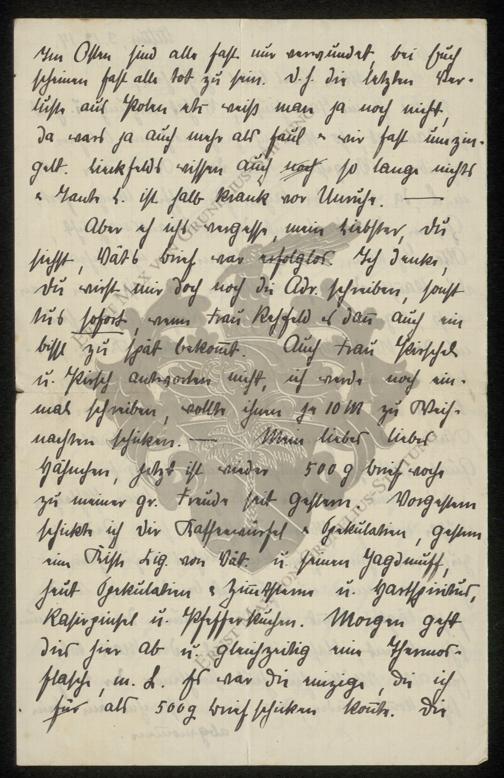 Im Osten sind alle fast nur verwundet, bei Euch
scheinen fast alle tot zu sein. D.h. die letzten Ver-
luste aus Polen etc weiß man ja noch nicht,
da wars ja auch mehr als faul & wir fast umzin-
gelt. Lieckfelds wissen auch noch so lange nichts
& Tante L. ist halb krank vor Unruhe. —
Aber eh ichs vergesse, mein Liebster, Du
siehst, Väts Brief war erfolglos. Ich denke,
Du wirst mir doch noch die Adr. schreiben, sonst
tus sofort, wenn Frau Rehfeld es dann auch ein
bissl zu spät bekommt. Auch Frau
u. Kirsch antworten nicht, ich werde noch ein-
mal schreiben, wollte ihnen je 10 M zu Weih-
nachten schicken. — Mein lieber lieber
Hähnchen, jetzt ist wieder 500 g Brief woche
zu meiner gr. Freude seit gestern. Vorgestern
schickte ich Dir Kaffeewürfel & Spekulatien, gestern
eine Kiste Zig. von Vät. u. seinen Jagdmuff,
heut Spekulatien & Zimmtsterne u. Hartspiritus,
Rasirpinsel u. Pfefferkuchen. Morgen geht
dies hier ab u. gleichzeitig eine Thermos-
flasche, m. L. Es war die einzige, die ich
für als 500 g Brief schicken konnte. Die
ERNST MAX VON GRUNELIUS-STIFTUNG
ERNST MAX VON GRUNELIUS-STIFTUNG